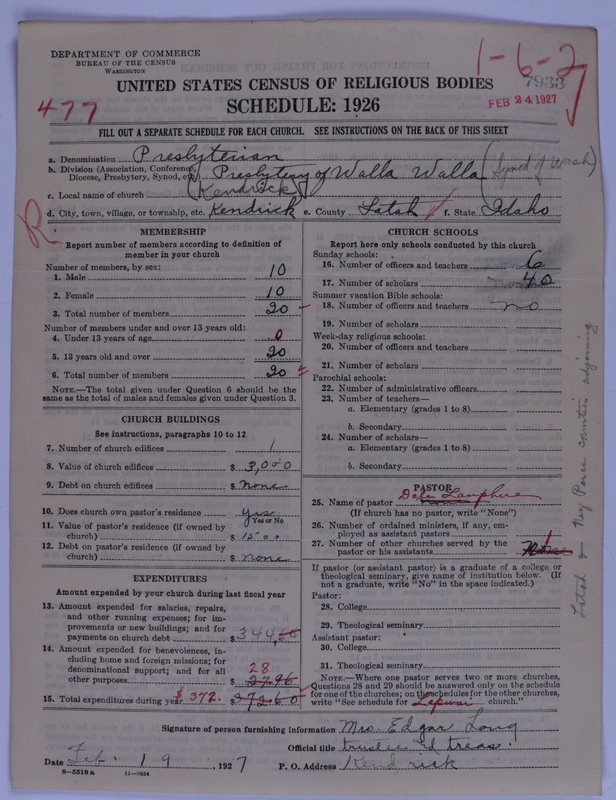 DEPARTMENT OF COMMERCE
BUREAU OF THE CENSUS
WASHINGTON
1-6-2
7933
UNITED STATES CENSUS OF RELIGIOUS BODIES
477
SCHEDULE: 1926
FEB 24 1927
FILL OUT A SEPARATE SCHEDULE FOR EACH CHURCH. SEE INSTRUCTIONS ON THE BACK OF THIS SHEET
a. Denomination Presbyterian
b. Division (Association, Conference, Diocese, Presbytery, Synod, etc.) Presbytery of Walla Walla (Synod of Wash)
c. Local name of church Kendrick
d. City, town, village, or township, etc. Kendrick e. County Latah f. State Idaho
R
MEMBERSHIP
Report number of members according to definition of
member in your church
Number of members, by sex:
1. Male 10
2. Female 10
3. Total number of members 20
Number of members under and over 13 years old:
4. Under 13 years of age 0
5. 13 years old and over 20
6. Total number of members 20
NOTE.—The total given under Question 6 should be the
same as the total of males and females given under Question 3.
CHURCH BUILDINGS
See instructions, paragraphs 10 to 12
7. Number of church edifices 1
8. Value of church edifices $ 3,000
9. Debt on church edifices $ none
10. Does church own pastor's residence yes
Yes or No
11. Value of pastor's residence (if owned by
church) $ 1500
12. Debt on pastor's residence (if owned by
church) $ none
EXPENDITURES
Amount expended by your church during last fiscal year
13. Amount expended for salaries, repairs,
and other running expenses; for im-
provements or new buildings; and for
payments on church debt $ 344.
14. Amount expended for benevolences, in-
cluding home and foreign missions; for
denominational support; and for all
28
other purposes $
15. Total expenditures during year $ 372. $ 372.60
CHURCH SCHOOLS
Report here only schools conducted by this church
Sunday schools:
16. Number of officers and teachers 6
17. Number of scholars 40
Summer vacation Bible schools:
18. Number of officers and teachers no
19. Number of scholars
Week-day religious schools:
20. Number of officers and teachers
21. Number of scholars
Parochial schools:
22. Number of administrative officers
23. Number of teachers—
a. Elementary (grades 1 to 8)
b. Secondary
24. Number of scholars—
a. Elementary (grades 1 to 8)
b. Secondary
PASTOR
25. Name of pastor Lanphere
(If church has no pastor, write "None")
26. Number of ordained ministers, if any, em-
ployed as assistant pastors
27. Number of other churches served by the
pastor or his assistants 1
If pastor (or assistant pastor) is a graduate of a college or
theological seminary, give name of institution below. (If
not a graduate, write "No" in the space indicated.)
Pastor:
28. College
29. Theological seminary
Assistant pastor:
30. College
31. Theological seminary
NOTE.—Where one pastor serves two or more churches,
Questions 28 and 29 should be answered only on the schedule
for one of the churches; on the schedules for the other churches,
write "See schedule for Lapwai church."
Latah & Nez Perce counties adjoining
Signature of person furnishing information Mrs. Edgar Long
Official title trustee and treas.
Date Feb. 19, 1927 P. O. Address Kendrick
8—5518 a 11—9054